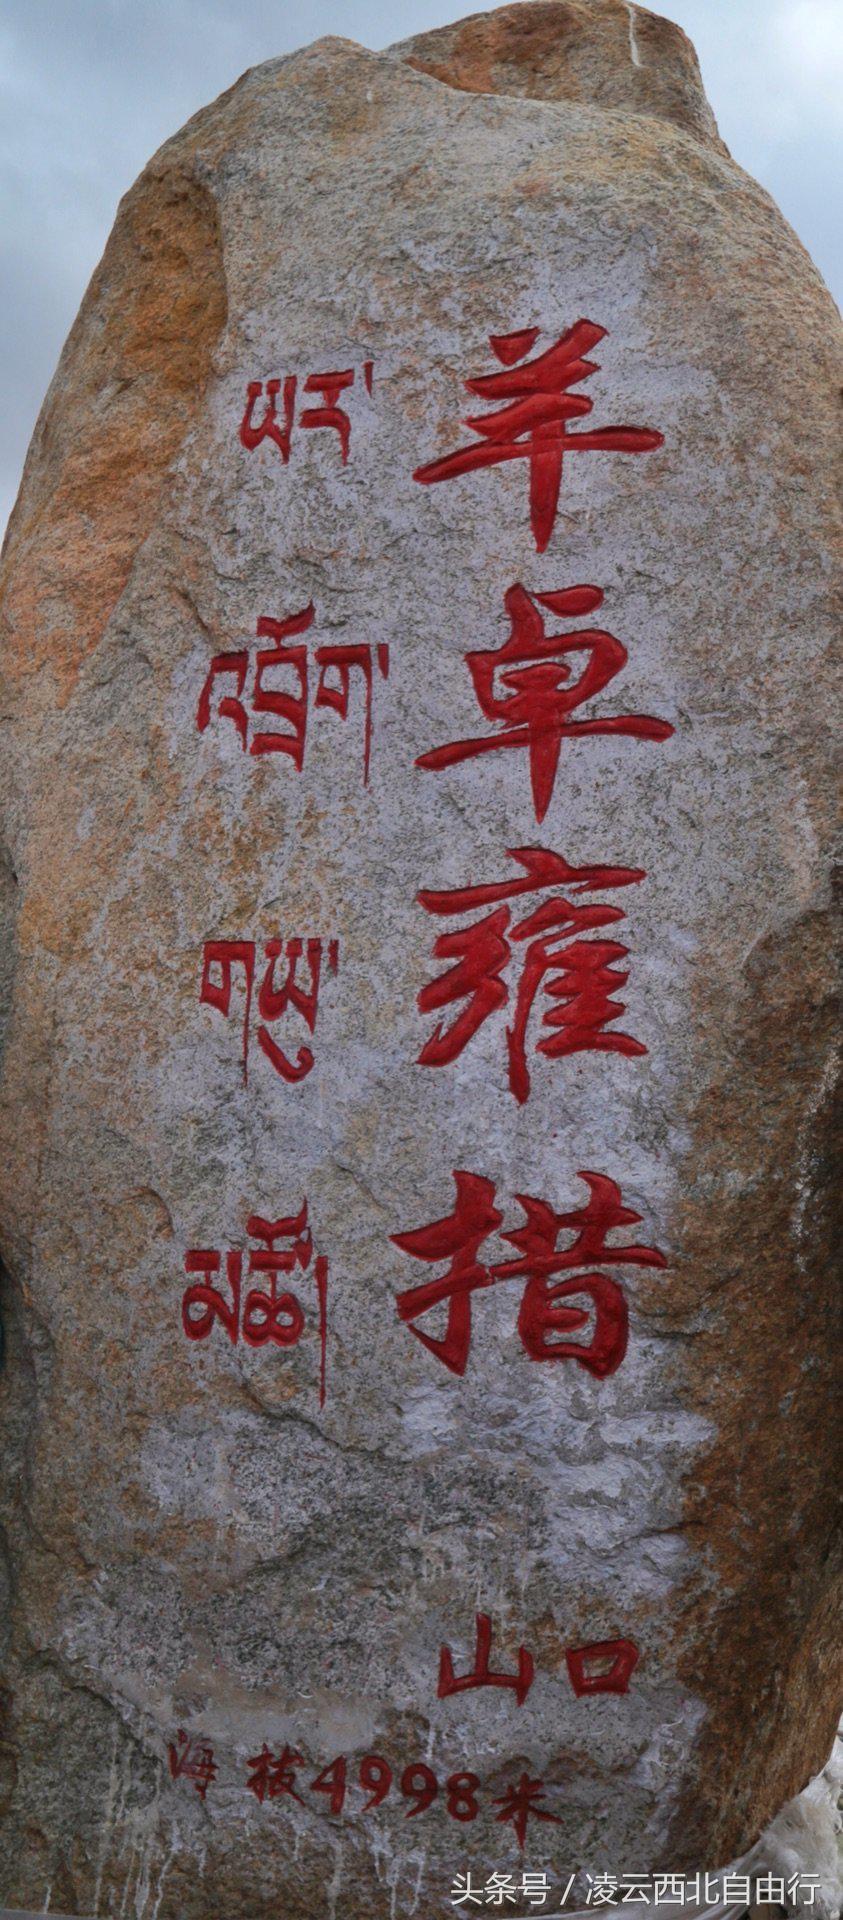 羊卓雍措
ཡར་
འབྲོག་
གཡུ་
མཚོ།
山口
海拔4998米
头条号 / 凌云西北自由行